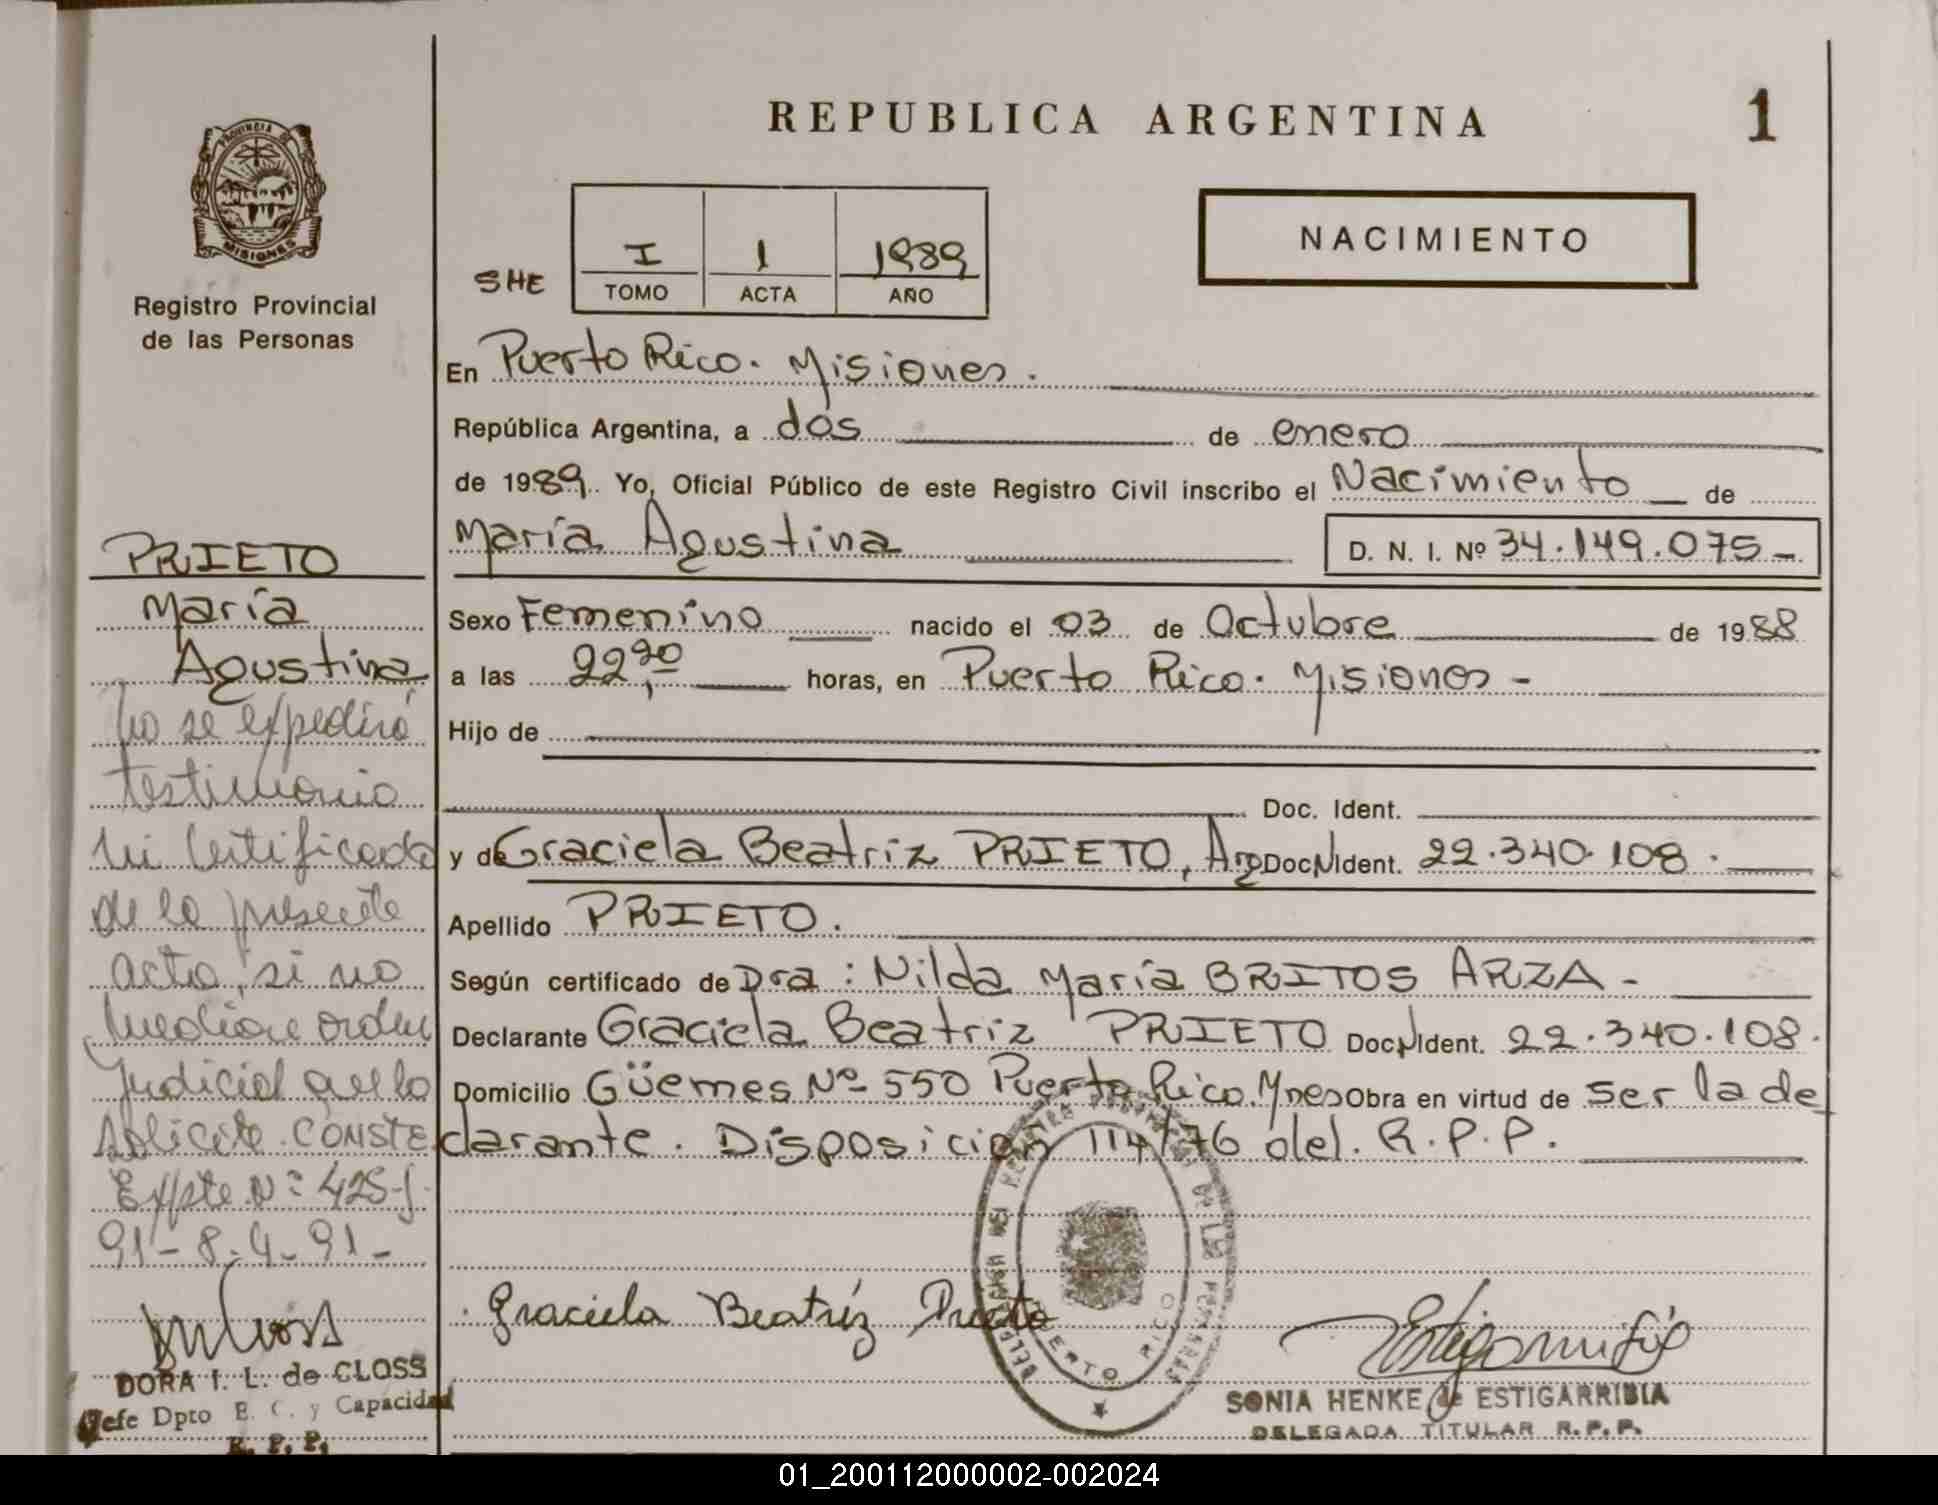 REPUBLICA ARGENTINA
1
PROVINCIA DE
MISIONES
Registro Provincial
de las Personas
SHE
I 1 1989
TOMO ACTA AÑO
NACIMIENTO
En Puerto Rico. Misiones.
República Argentina, a dos de enero
de 1989. Yo, Oficial Público de este Registro Civil inscribo el Nacimiento de
María Agustina D. N. I. Nº 34.149.075-
Sexo Femenino nacido el 03 de Octubre de 1988
a las 22,20 horas, en Puerto Rico. Misiones -
Hijo de
Doc. Ident.
y de Graciela Beatriz PRIETO, Arg Doc N Ident. 22.340.108.
Apellido PRIETO.
Según certificado de Dra: Nilda María BRITOS ARZA -
Declarante Graciela Beatriz PRIETO Doc N Ident. 22.340.108.
Domicilio Güemes Nº 550 Puerto Rico. Mnes Obra en virtud de ser la de
clarante. Disposición 114/76 del. R.P.P.
PRIETO
María
Agustina
No se expedirá
testimonio
ni certificado
de la presente
acta, si no
mediare orden
Judicial que lo
solicite. CONSTE
Expte Nº 425-J-
91-8.4.91-
DORA I. L. de CLOSS
Jefe Dpto E. C. y Capacidad
R. P. P.
Graciela Beatríz Prieto
PUERTO RICO
SONIA HENKE de ESTIGARRIBIA
DELEGADA TITULAR R.P.P.
01_200112000002-002024